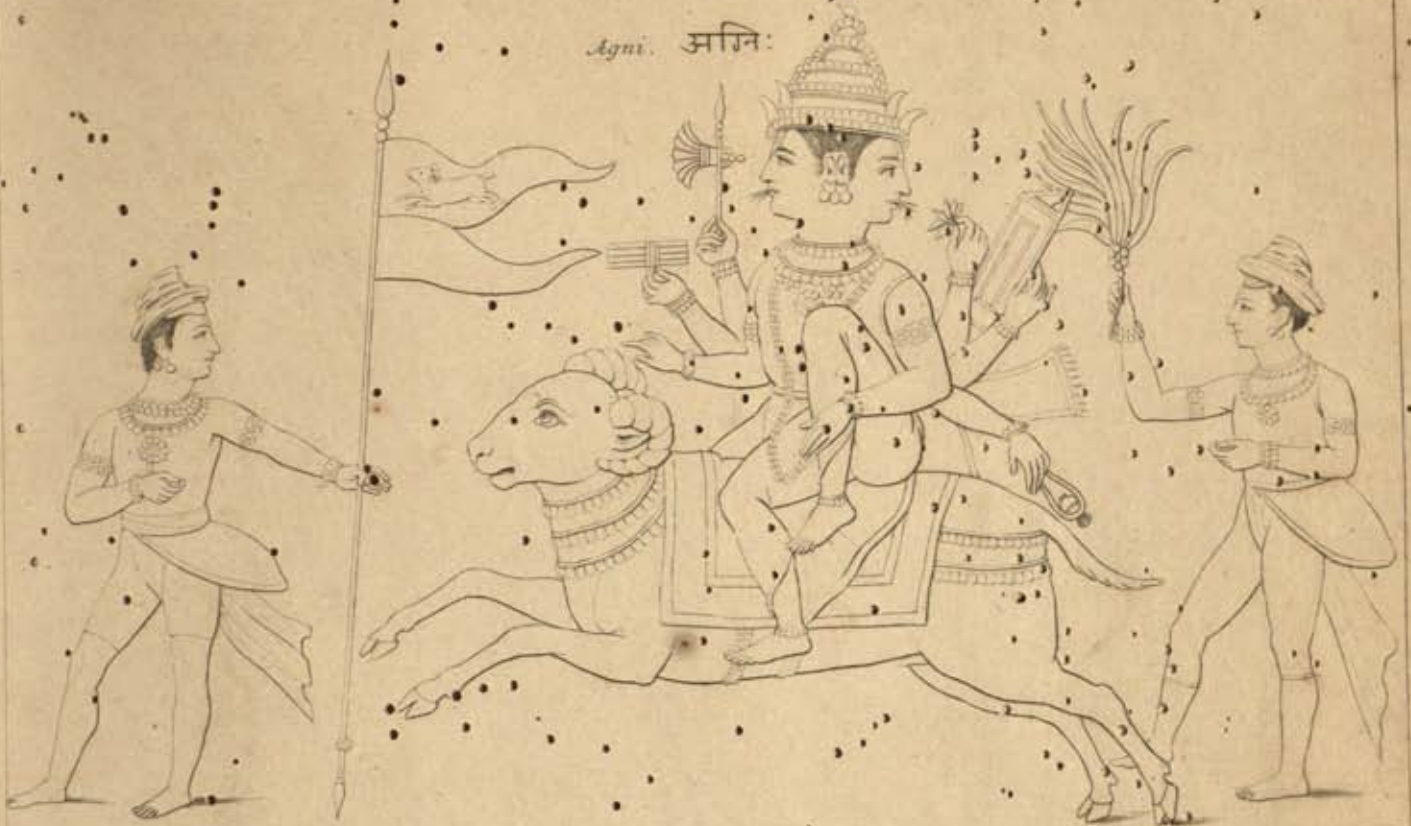 Agni. अग्नि: